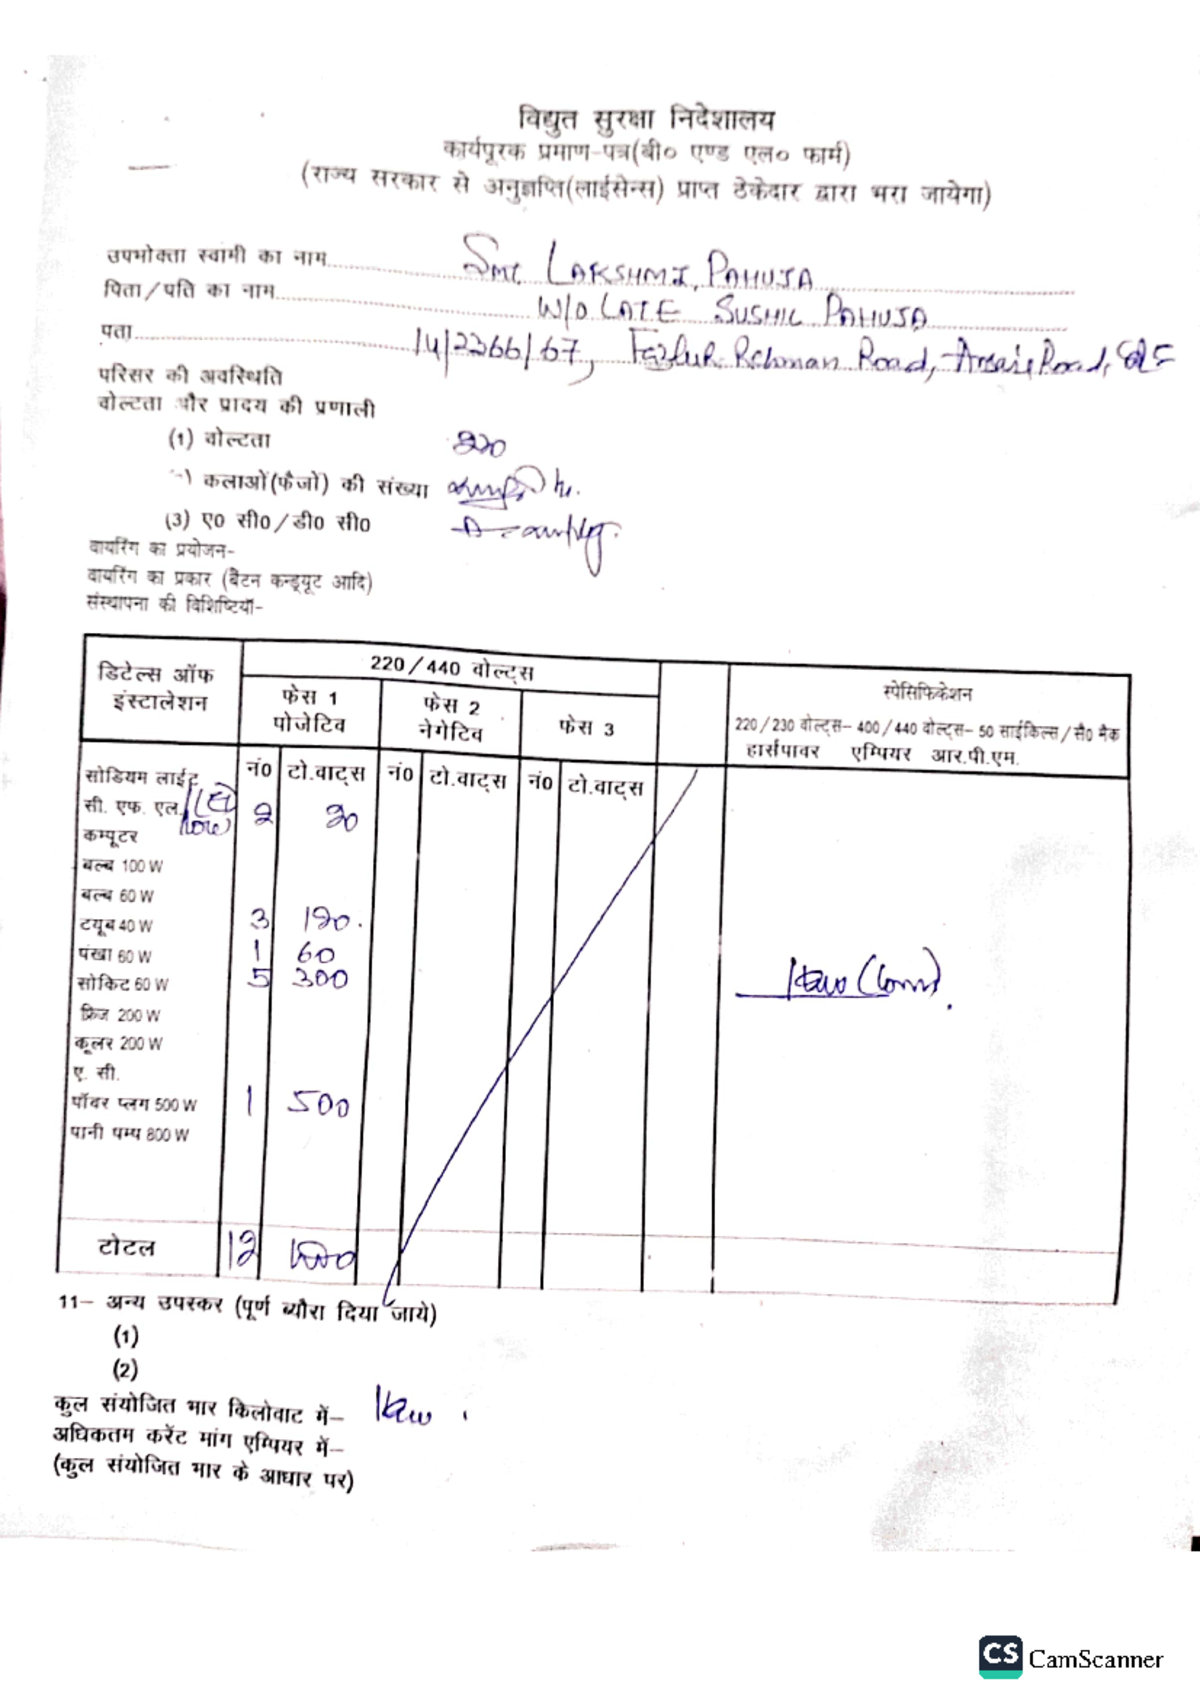 विद्युत सुरक्षा निदेशालय
कार्यपूरक प्रमाण-पत्र(बी० एण्ड एल० फार्म)
(राज्य सरकार से अनुज्ञप्ति(लाईसेन्स) प्राप्त ठेकेदार द्वारा भरा जायेगा)
उपभोक्ता स्वामी का नाम Smt. LAKSHMI, PAHUJA
पिता/पति का नाम W/O LATE SUSHIL PAHUJA
पता 14/2266/67, Rehman Road, Road,
परिसर की अवस्थिति
वोल्टता और प्रादय की प्रणाली
(1) वोल्टता 220
कलाओं(फैजों) की संख्या
(3) ए० सी०/डी० सी०
वायरिंग का प्रयोजन-
वायरिंग का प्रकार (बैटन कन्ड्यूट आदि)
संस्थापना की विशिष्टियाँ-
डिटेल्स ऑफ इंस्टालेशन 220/440 वोल्ट्स स्पेसिफिकेशन
फेस 1 पोजेटिव फेस 2 नेगेटिव फेस 3 220/230 वोल्ट्स- 400/440 वोल्ट्स- 50 साईकिल्स/सै० मैक
हार्सपावर एम्पियर आर.पी.एम.
नं० टो.वाट्स नं० टो.वाट्स नं० टो.वाट्स
सोडियम लाईट
सी. एफ. एल. 2 20
कम्पूटर
बल्ब 100 W
बल्ब 60 W
टयूब 40 W 3 120.
पंखा 60 W 1 60
सोकिट 60 W 5 300
फ्रिज 200 W
कूलर 200 W
ए. सी.
पॉवर प्लग 500 W 1 500
पानी पम्प 800 W
टोटल 12 1000
11- अन्य उपस्कर (पूर्ण ब्यौरा दिया जाये)
(1)
(2)
कुल संयोजित भार किलोवाट में- 1kw
अधिकतम करेंट मांग एम्पियर में-
(कुल संयोजित भार के आधार पर)
CS CamScanner